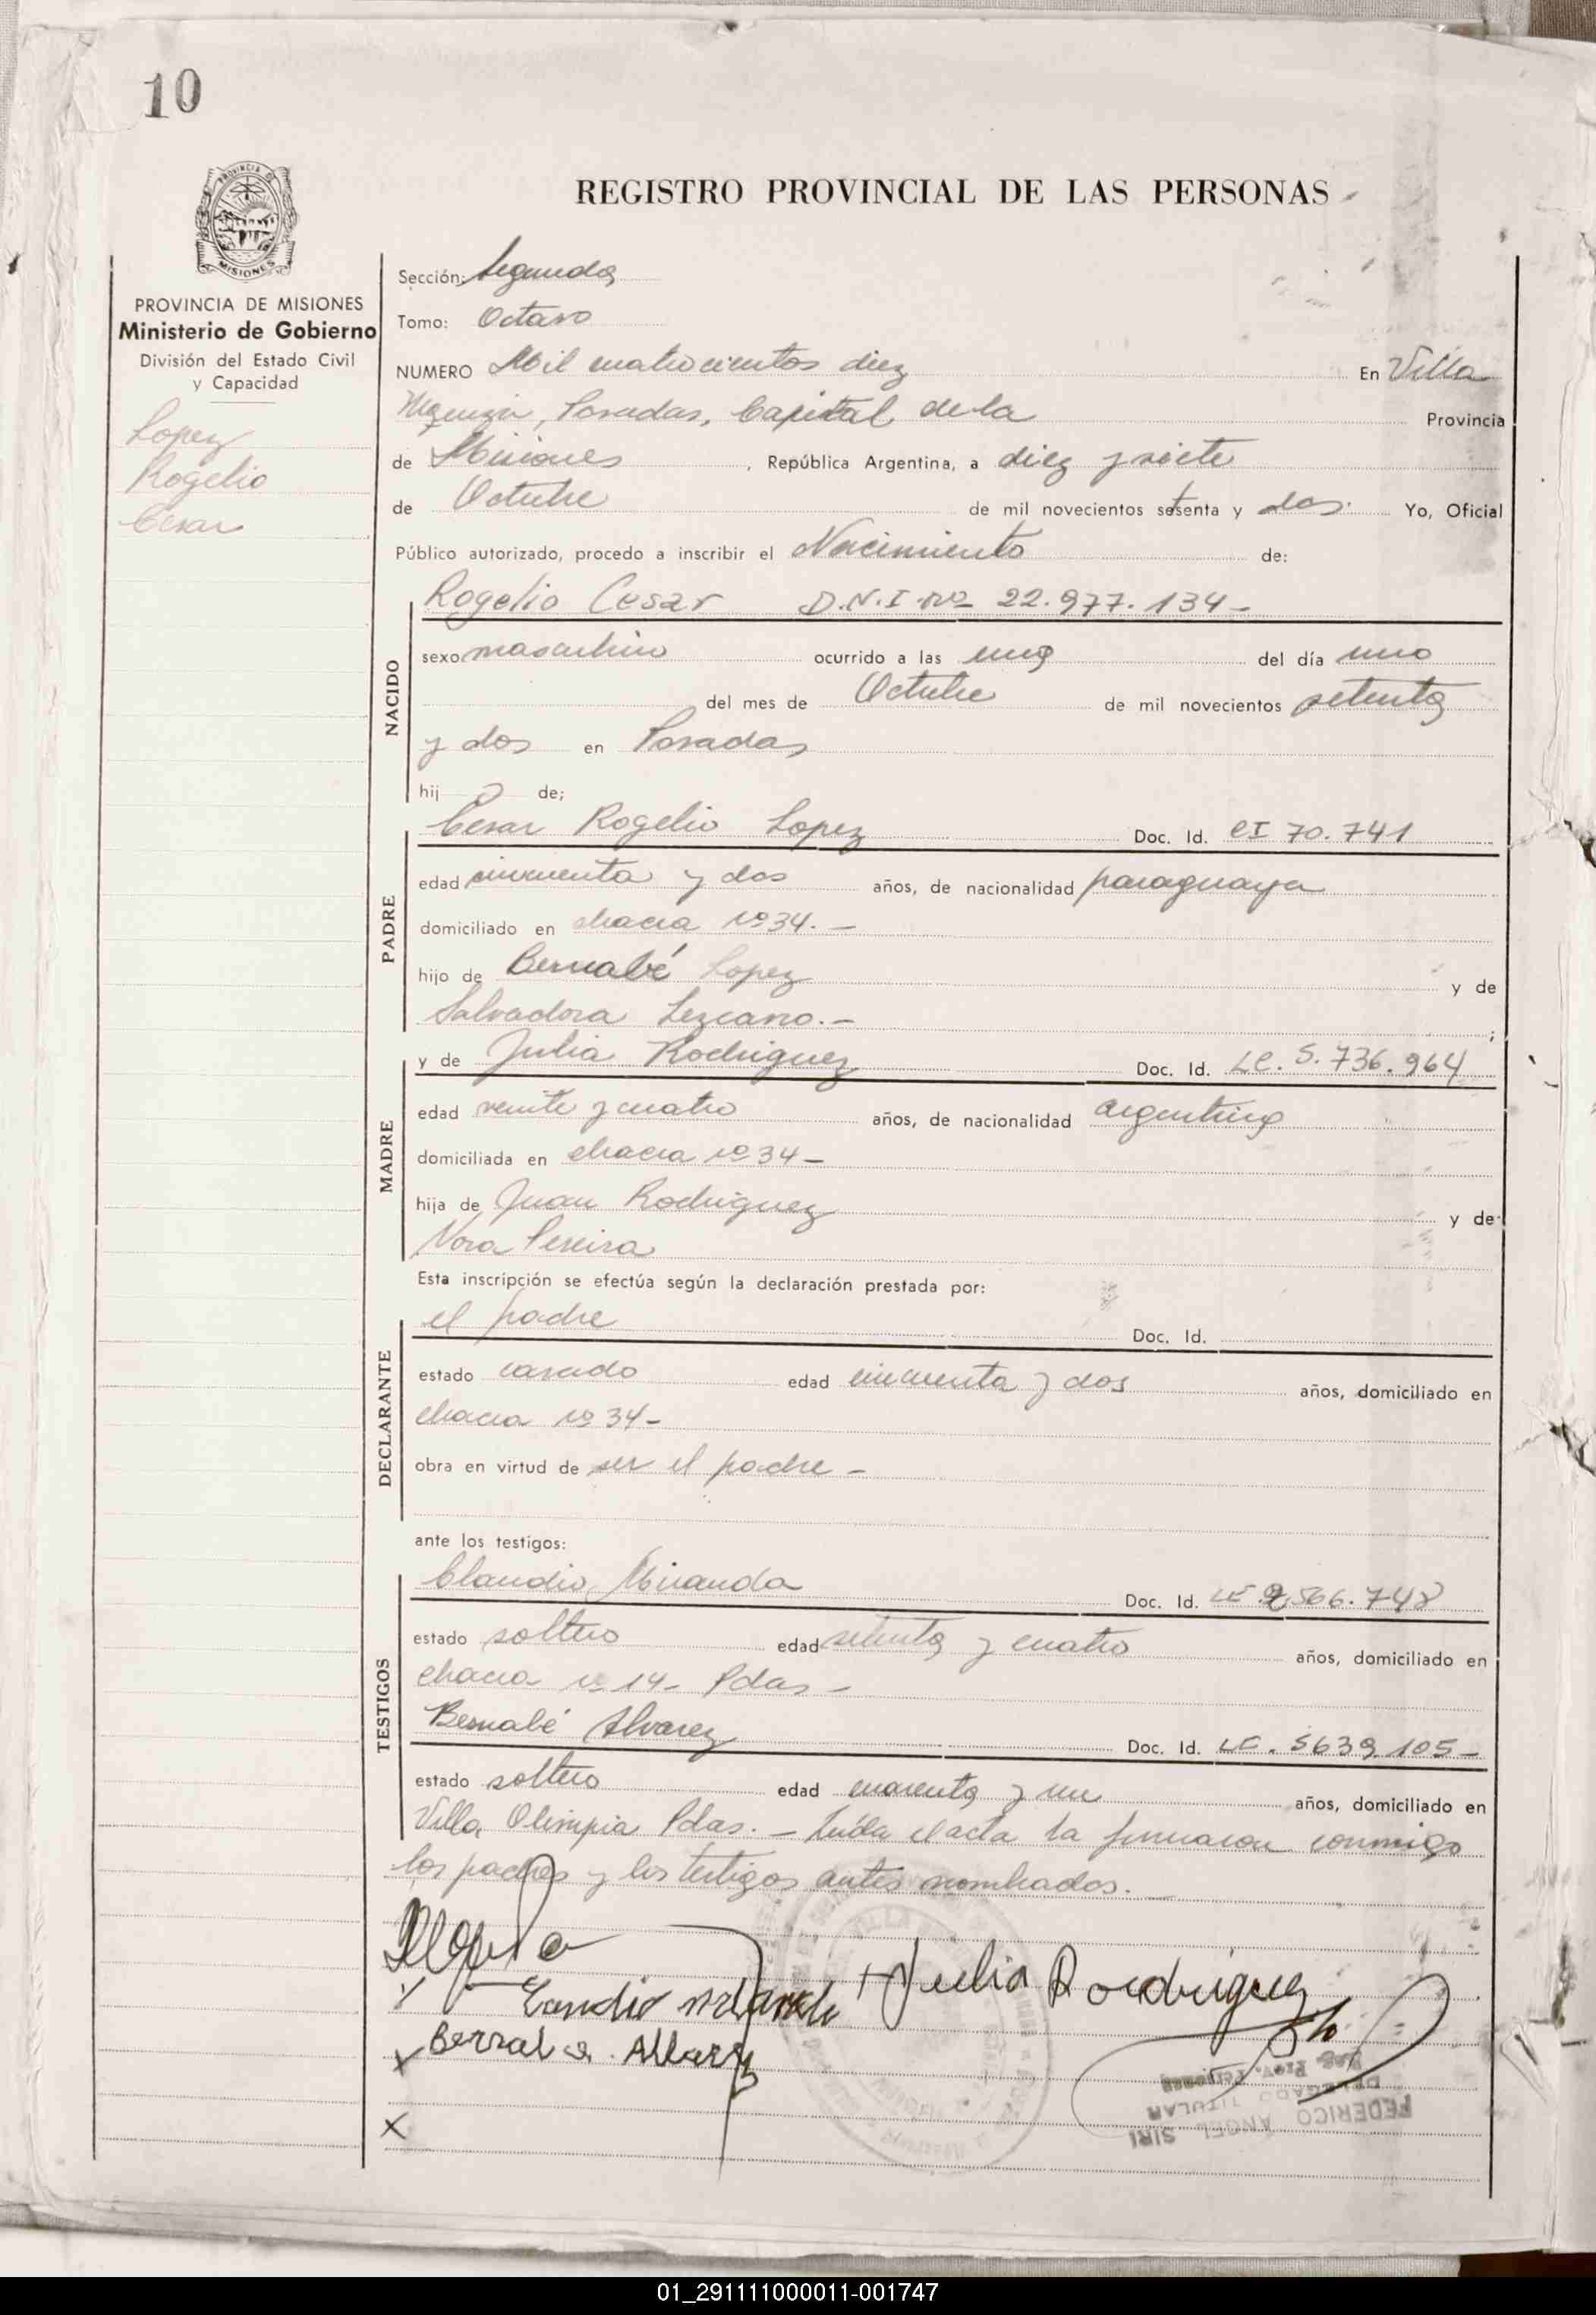 10
PROVINCIA DE
MISIONES
REGISTRO PROVINCIAL DE LAS PERSONAS
PROVINCIA DE MISIONES
Ministerio de Gobierno
División del Estado Civil
y Capacidad
Lopez
Rogelio
Cesar
Sección: Segunda
Tomo: Octavo
NUMERO Mil cuatrocientos diez En Villa
Urquiza, Posadas, Capital de la Provincia
de Misiones, República Argentina, a diez y siete
de Octubre de mil novecientos setenta y dos. Yo, Oficial
Público autorizado, procedo a inscribir el Nacimiento de:
NACIDO
Rogelio Cesar D.N.I. Nº 22.977.134-
sexo masculino ocurrido a las una del día uno
del mes de Octubre de mil novecientos setenta
y dos en Posadas
hij o de;
PADRE
Cesar Rogelio Lopez Doc. Id. CI 70.741
edad cincuenta y dos años, de nacionalidad paraguaya
domiciliado en chacra nº 34.-
hijo de Bernabé Lopez y de
Salvadora Lezcano.- ;
MADRE
y de Julia Rodriguez Doc. Id. LC. 5.736.964
edad veinte y cuatro años, de nacionalidad argentina
domiciliada en chacra nº 34-
hija de Juan Rodriguez y de
Nora Pereira
Esta inscripción se efectúa según la declaración prestada por:
DECLARANTE
el padre Doc. Id.
estado casado edad cincuenta y dos años, domiciliado en
chacra nº 34-
obra en virtud de ser el padre -
ante los testigos:
TESTIGOS
Claudio Miranda Doc. Id. LE 566.748
estado soltero edad setenta y cuatro años, domiciliado en
chacra nº 14- Pdas-
Bernabé Alvarez Doc. Id. LE. 5639.105-
estado soltero edad cuarenta y un años, domiciliado en
Villa Olimpia Pdas.- Leída el acta la firmaron conmigo
los padres y los testigos antes nombrados.-
Julia Roudriguez
FEDERICO ANGEL SIRI
DELEGADO TITULAR
Reg. Prov. Personas
01_291111000011-001747